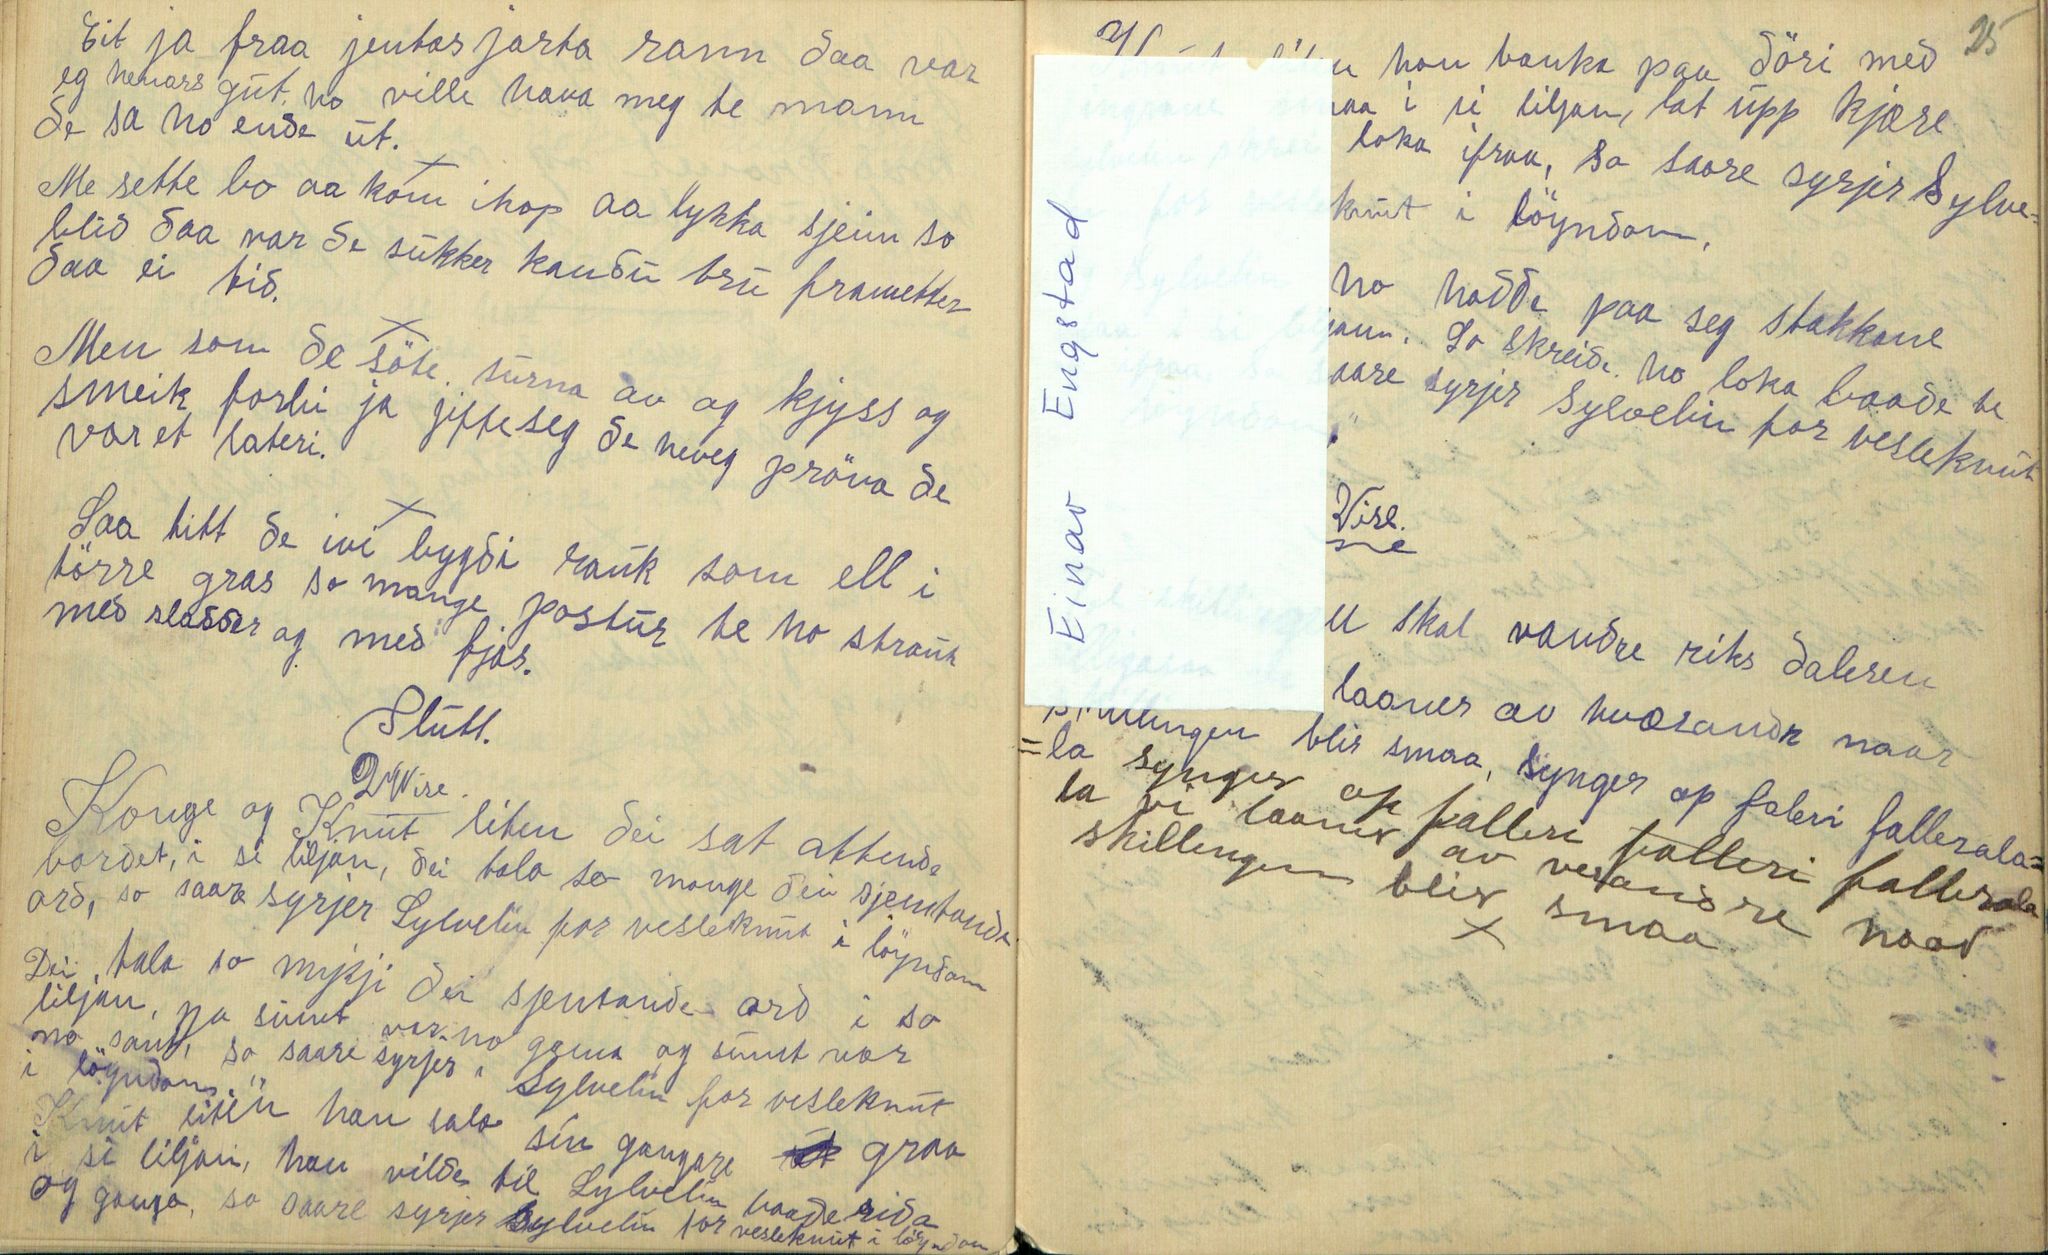 Eit ja fraa jentas jarta rann daa var
eg hennars gut, ho ville hava meg te mann
de sa ho ende ut.
x
Me sette bo aa kom ihop aa lykka sjein so
blid daa var de sukker kandu tru frametter
daa ei tid.
x
Men som de söte surna av og kjyss og
smeik forbi ja jifte seg de neveg pröva de
var et lateri.
x
Saa titt de ivi bygdi rauk som ell i
törre gras so mange postur te ho strauk
med sladder og med fjas.
Slutt.
2 Vise.
Konge og Knut liten dei sat attende
bordet, i si liljan, dei tala so mange dei sjemtande
ord, so saare syrjer Sylvelin for vesleknut i löyndom
Dei tala so mykji dei sjentande ord i so
liljan, no sumt var no gama og sumt var
no sant, so saare syrjer, Sylvelin for vesleknut
i löyndom."
Knut liten han sala sin gangare graa
i si liljan, han vilde til Sylvelin baade rida
og ganga, so saare syrjer Sylvelin for vesleknut i löyndom
25
han banka paa döri med
i si liljan, lat upp kjære
loka ifraa, so saare syrjer Sylve=
knut i löyndom,
ho hadde paa seg stakkane
So skreid ho loka baade te
saare syrjer Sylvelin for vesleknut
"
Vise.
skal vandre riks daleren
laaner av hverandre naar
skillingen blir smaa, synger op faleri fallerala=
=la synger op falleri falleri fallerala
la vi laaner av verandre naar
skillingen blir smaa
x
Einar Engstad